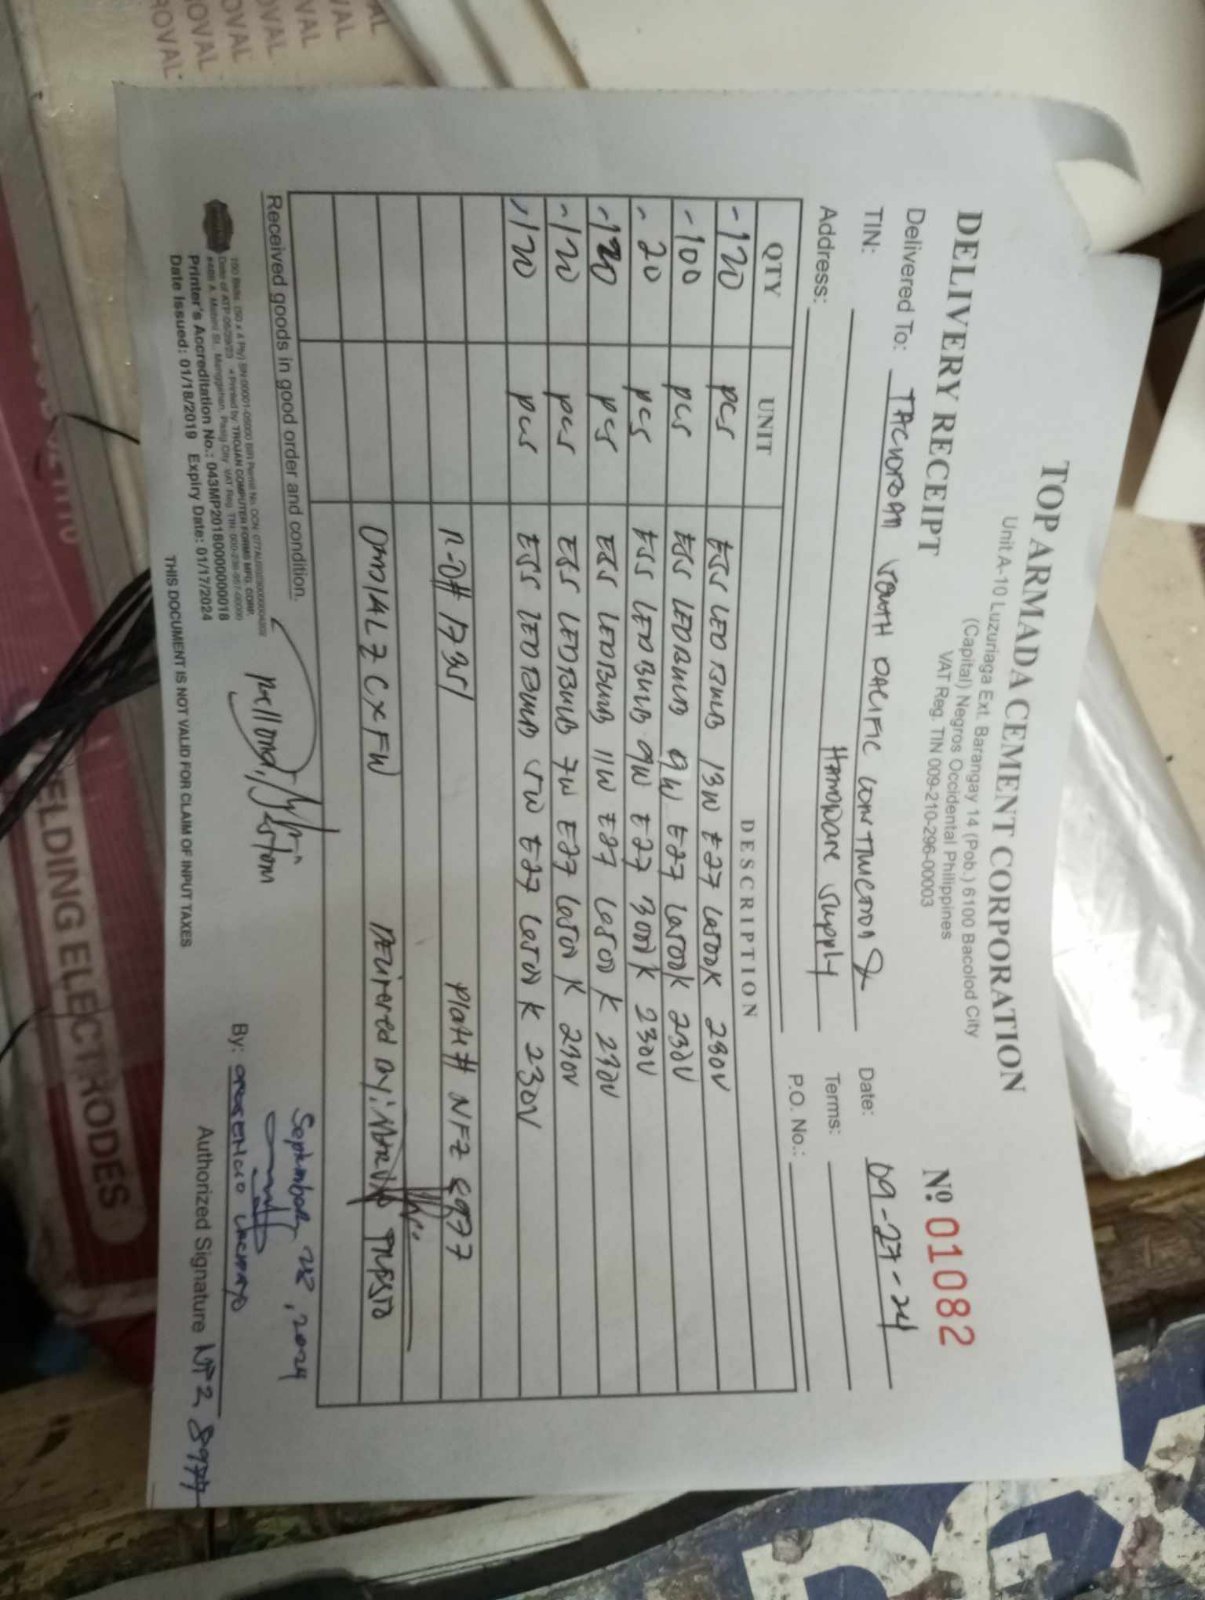 TOP ARMADA CEMENT CORPORATION
Unit A-10 Luzuriaga Ext. Barangay 14 (Pob.) 6100 Bacolod City
(Capital) Negros Occidental Philippines
VAT Reg. TIN 009-210-296-00003
DELIVERY RECEIPT
Nº 01082
Delivered To: TACLOBAN SOUTH PACIFIC CONSTRUCTION &
Date: 09-27-24
TIN: HARDWARE SUPPLY
Terms:
Address:
P.O. No.:
QTY UNIT DESCRIPTION
-120 pcs ESS LED BULB 13W E27 6500K 230V
-100 pcs ESS LED BULB 9W E27 6500K 230V
-20 pcs ESS LED BULB 9W E27 3000K 230V
-120 pcs ESS LED BULB 11W E27 6500K 230V
-120 pcs ESS LED BULB 7W E27 6500K 230V
-120 pcs ESS LED BULB 5W E27 6500K 230V
Plate# NFZ 8977
Delivered by:
Received goods in good order and condition.
September 28, 2024
100 Bklts. (50 x 4 Ply) SN 00001-05000
Printed by TROJAN COMPUTER FORMS MFG. CORP.
Printer's Accreditation No.: 043MP20180000000018
Date Issued: 01/18/2019 Expiry Date: 01/17/2024
By:
Authorized Signature
THIS DOCUMENT IS NOT VALID FOR CLAIM OF INPUT TAXES
WELDING ELECTRODES